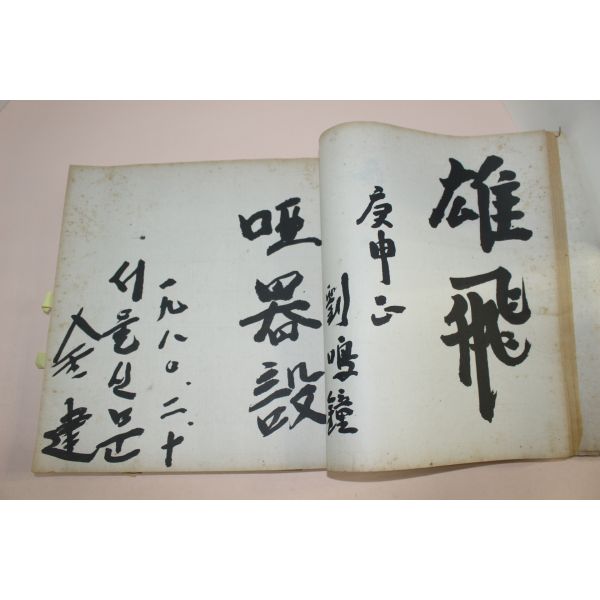 雄飛
庚申 正
劉鳴鐘
啞器設
一九八〇.二.十
서울신문
金 建